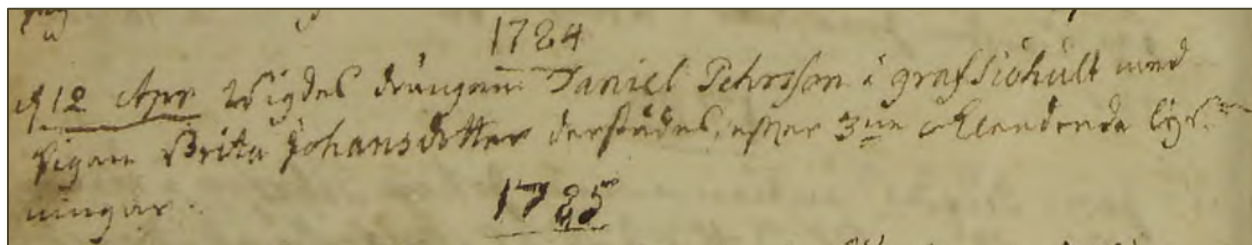 1784
d 12 Apr Wigdes drängen Daniel Pehrsson i Grafsiöhult med
pigan Brita Johansdotter derstädes, efter 3ne lys-
ningar.
1785